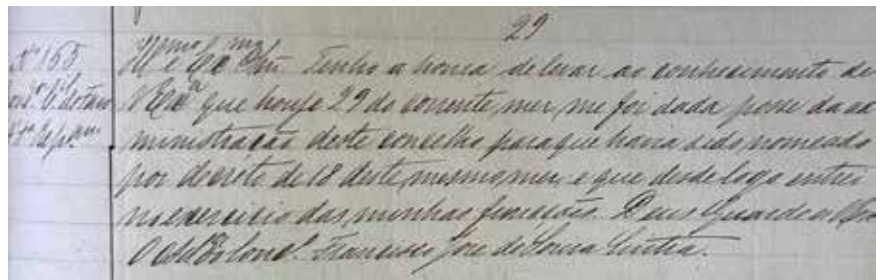 29
Nº 165
Illmo e Exmo Snr. Tenho a honra de levar ao conhecimento de
V Exª que hoje 29 do corrente, mez, me foi dada posse da ad
ministração deste concelho para que havia sido nomeado
por decreto de 18 deste, mesmo, mez, e que desde logo entrei
no exercicio das, minhas funcções. Deus Guarde a V Exª
O Admor do Concº. Francisco José de Souza